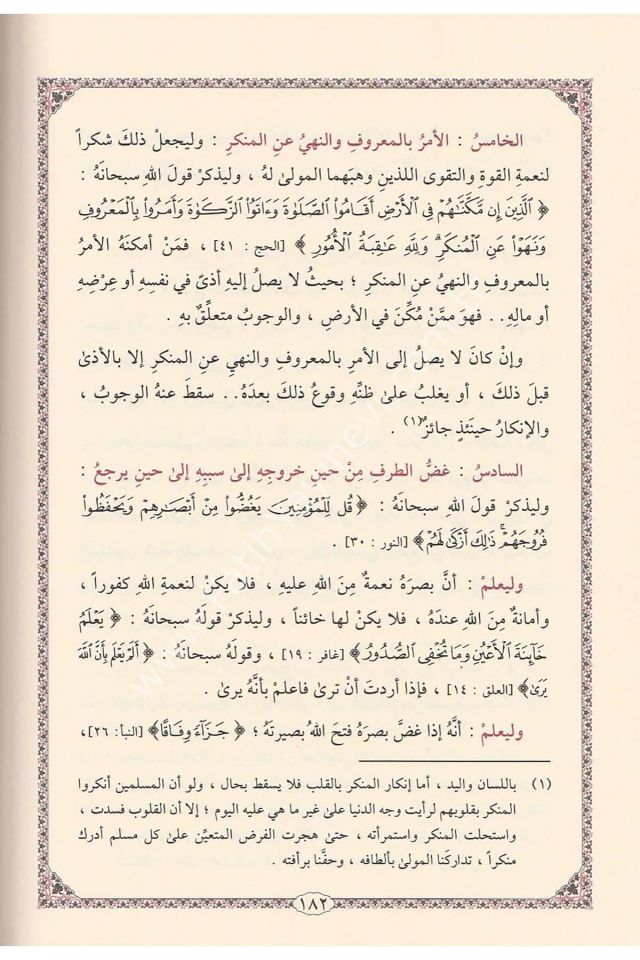 الخامسُ : الأمرُ بالمعروفِ والنهيُ عنِ المنكرِ : وليجعلْ ذلكَ شكراً
لنعمةِ القوةِ والتقوى اللذينِ وهبَهما المولىٰ لهُ ، وليذكرْ قولَ اللهِ سبحانَهُ :
﴿ ٱلَّذِينَ إِن مَّكَّنَّٰهُمْ فِى ٱلْأَرْضِ أَقَامُوا۟ ٱلصَّلَوٰةَ وَءَاتَوُا۟ ٱلزَّكَوٰةَ وَأَمَرُوا۟ بِٱلْمَعْرُوفِ
وَنَهَوْا۟ عَنِ ٱلْمُنكَرِ ۗ وَلِلَّهِ عَٰقِبَةُ ٱلْأُمُورِ ﴾ [الحج : ٤١] ، فمَنْ أمكنَهُ الأمرُ
بالمعروفِ والنهيُ عنِ المنكرِ ؛ بحيثُ لا يصلُ إليهِ أذىً في نفسِهِ أو عِرْضِهِ
أو مالِهِ.. فهوَ ممَّنْ مُكِّنَ في الأرضِ ، والوجوبُ متعلِّقٌ بهِ .
وإنْ كانَ لا يصلُ إلى الأمرِ بالمعروفِ والنهيِ عنِ المنكرِ إلا بالأذىٰ
قبلَ ذلكَ ، أو يغلبُ علىٰ ظنِّهِ وقوعُ ذلكَ بعدَهُ.. سقطَ عنهُ الوجوبُ ،
والإنكارُ حينَئذٍ جائزٌ(١) .
السادسُ : غضُّ الطرفِ مِنْ حينِ خروجِهِ إلىٰ سببِهِ إلىٰ حينِ يرجعُ :
وليذكرْ قولَ اللهِ سبحانَهُ : ﴿ قُل لِّلْمُؤْمِنِينَ يَغُضُّوا۟ مِنْ أَبْصَٰرِهِمْ وَيَحْفَظُوا۟
فُرُوجَهُمْ ۚ ذَٰلِكَ أَزْكَىٰ لَهُمْ ﴾ [النور : ٣٠] .
وليعلمْ : أنَّ بصرَهُ نعمةٌ مِنَ اللهِ عليهِ ، فلا يكنْ لنعمةِ اللهِ كفوراً ،
وأمانةٌ مِنَ اللهِ عندَهُ ، فلا يكنْ لها خائناً ، وليذكرْ قولَهُ سبحانَهُ : ﴿ يَعْلَمُ
خَآئِنَةَ ٱلْأَعْيُنِ وَمَا تُخْفِى ٱلصُّدُورُ ﴾ [غافر : ١٩] ، وقولَهُ سبحانَهُ : ﴿ أَلَمْ يَعْلَم بِأَنَّ ٱللَّهَ
يَرَىٰ ﴾ [العلق : ١٤] ، فإذا أردتَ أنْ ترىٰ فاعلمْ بأنَّهُ يرىٰ .
وليعلمْ : أنَّهُ إذا غضَّ بصرَهُ فتحَ اللهُ بصيرتَهُ ؛ ﴿ جَزَآءً وِفَاقًا ﴾ [النبأ : ٢٦] ،
(١) باللسان واليد ، أما إنكار المنكر بالقلب فلا يسقط بحال ، ولو أن المسلمين أنكروا
المنكر بقلوبهم لرأيت وجه الدنيا علىٰ غير ما هي عليه اليوم ؛ إلا أن القلوب فسدت ،
واستحلت المنكر واستمرأته ، حتىٰ هجرت الفرض المتعيِّن علىٰ كل مسلم أدرك
منكراً ، تداركَنا المولىٰ بألطافه ، وحفَّنا برأفته .
١٨٢